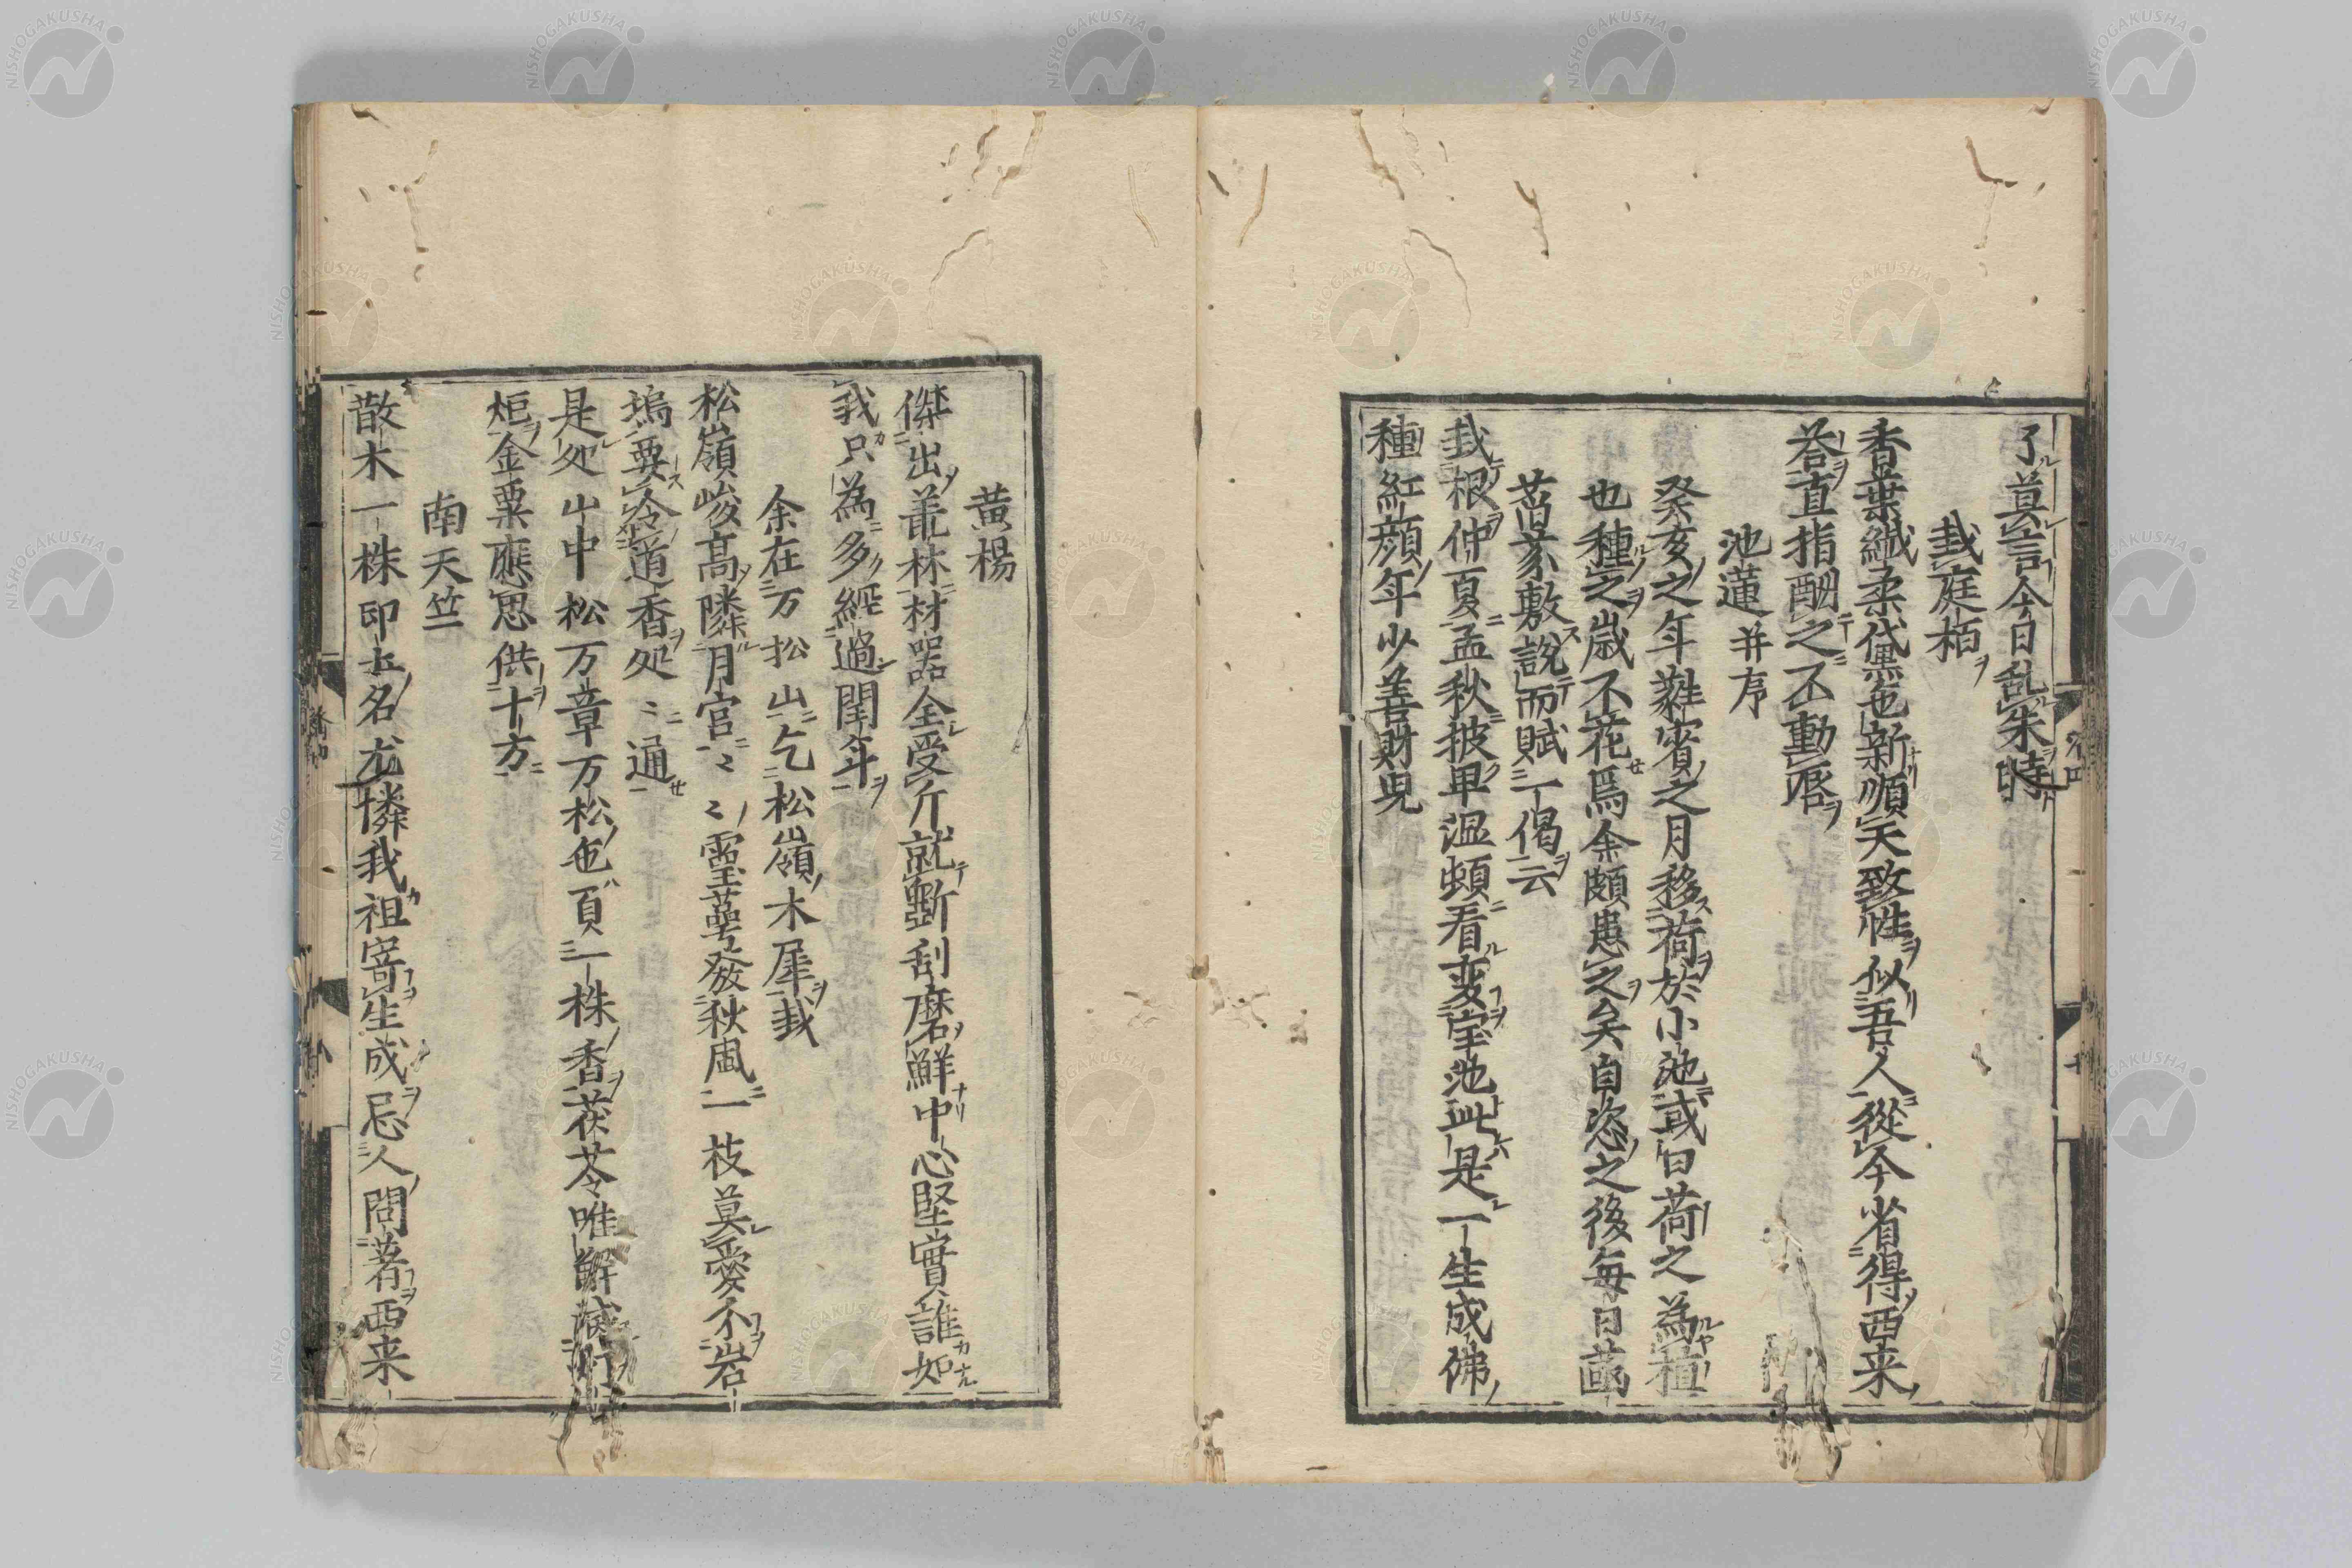 了莫言今日乱朱時
栽庭栢
香葉緘柔黛色新順天致性似吾人從今省得西来
荅直指酬之不動唇
池蓮并序
癸亥之年蕤賓之月移荷於小池或曰荷之為種
也種之歳不花焉余頗患之矣自恣之後毎日
菡萏敷說而賦一偈云
栽根仲夏孟秋披早温頻看変宝池此是一生成佛
種紅顔年少善財児
黄楊
傑出叢林材器全受斤就斷刮磨鮮中心堅實誰如
我只為多經過閏年
余在万松山乞松嶺木犀栽
松嶺峻高隣月宮〻〻霊萼發秋風一枝莫愛分岩
塢要令道香処〻通
是処山中松万章万松色頁一株香茯苓唯解
炬金粟應思供十方
南天竺
散木一株印土名尤憐我祖寄生成忌人問著西来
NISHOGAKUSHA